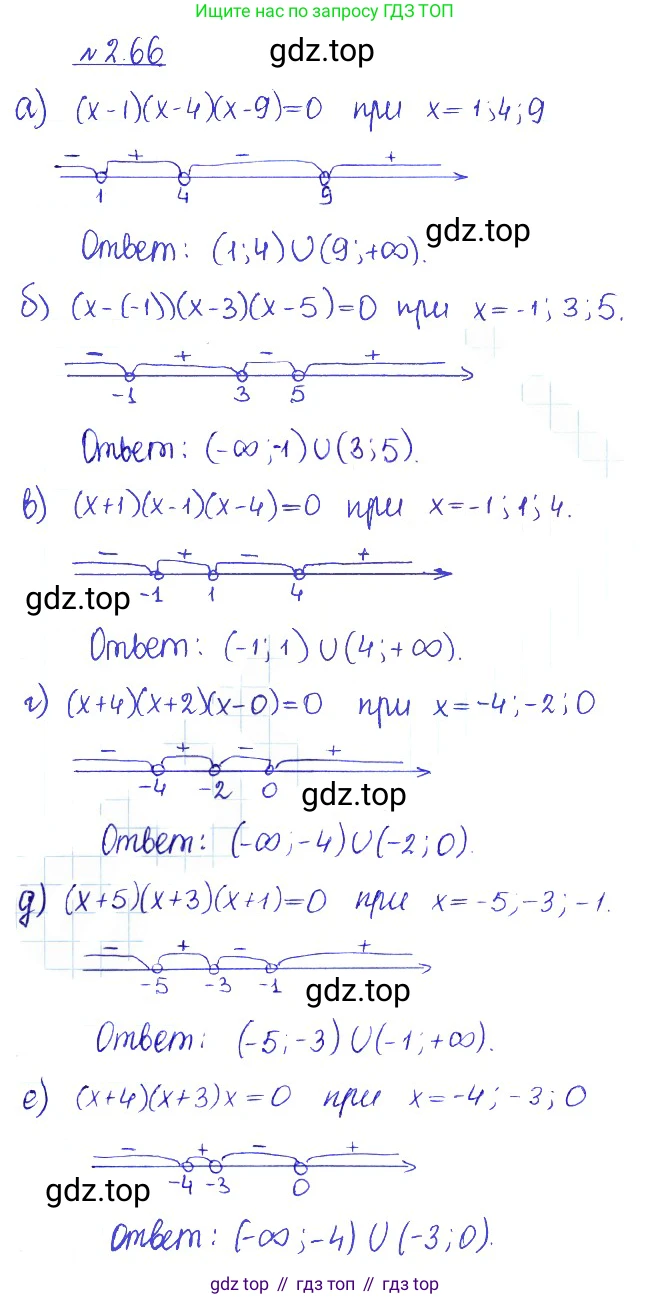 Ищите нас по запросу ГДЗ ТОП
№2.66
gdz.top
а) (x-1)(x-4)(x-9)=0 при x=1;4;9
- + - +
1 4 9
Ответ: (1;4)∪(9;+∞).
gdz.top
б) (x-(-1))(x-3)(x-5)=0 при x=-1;3;5.
- + - +
-1 3 5
Ответ: (-∞;-1)∪(3;5).
в) (x+1)(x-1)(x-4)=0 при x=-1;1;4.
- + - +
-1 1 4
gdz.top
Ответ: (-1;1)∪(4;+∞).
г) (x+4)(x+2)(x-0)=0 при x=-4;-2;0
- + - +
-4 -2 0
gdz.top
Ответ: (-∞;-4)∪(-2;0).
д) (x+5)(x+3)(x+1)=0 при x=-5;-3;-1.
- + - +
-5 -3 -1
gdz.top
Ответ: (-5;-3)∪(-1;+∞).
е) (x+4)(x+3)x=0 при x=-4;-3;0
- + - +
-4 -3 0
gdz.top
Ответ: (-∞;-4)∪(-3;0).
gdz top // гдз топ // гдз top // gdz топ